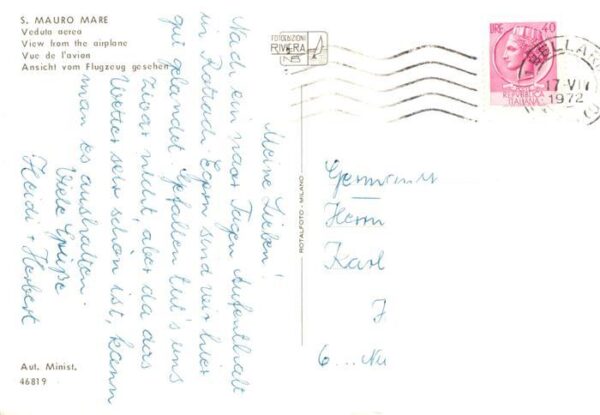 S. MAURO MARE
Veduta aerea
View from the airplane
Vue de l'avion
Ansicht vom Flugzeug gesehen
FOTOEDIZIONI
RIVIERA
LIRE 40
REPVBBLICA
ITALIANA
BELLARI
17-VII
1972
Meine Lieben!
Nach ein paar Tagen Aufenthalt
in Rottach Egern sind wir hier
gelandet. Gefallen tut's uns
zwar nicht, aber da das
Wetter sehr schön ist, kann
man es aushalten.
Viele Grüße
Heidi + Herbert
ROTALFOTO - MILANO
Germania
Herrn
Karl
J
6 ... Nu
Aut. Minist.
46819